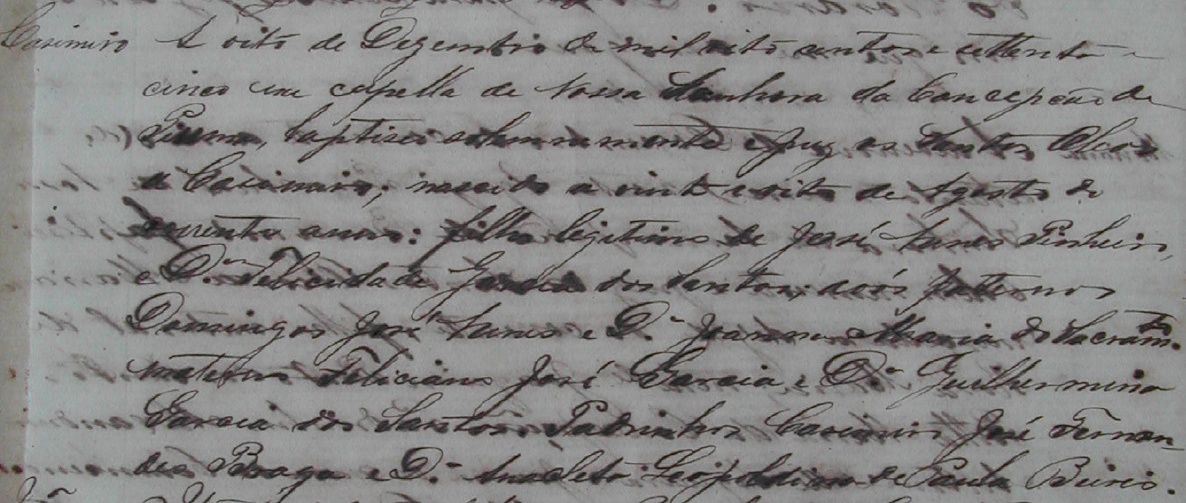 Casimiro A oito de Dezembro de mil oito centos e settenta e
cinco em capella de Nossa Senhora da Concepção de
Piuma, baptisei solemnemente e puz os Santos Oleos
a Casimiro, nascido a vinte e oito de Agosto do
corrente anno: filho legitimo de José Nunes Pinheiro,
e D.ª Felicidade Garcia dos Santos; avós paternos
Domingos José Nunes e D.ª Joanna Maria do Sacram.to
maternos Feliciano José Garcia, e D.ª Guilhermina
Garcia dos Santos. Padrinhos Casimiro José Fernan-
des Braga e D.ª Anacleta Leopoldina de Paula